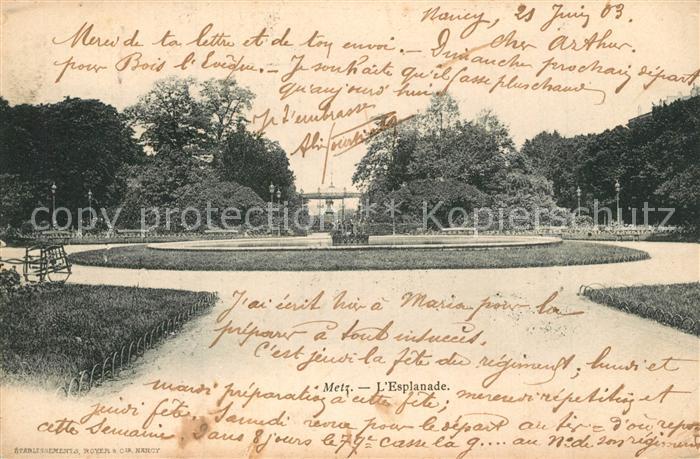 Nancy, 21 Juin 03.
Cher Arthur.
Merci de ta lettre et de ton envoi. — Dimanche prochain départ
pour Bois l'Evêque. — Je souhaite qu'il fasse plus chaud
qu'aujourd'hui
Je t'embrasse
© Peter Wolfgang Kraschutzki Schulz
J'ai écrit hier à Maria pour la
préparer à tout insuccès.
C'est jeudi la fête du régiment; lundi et
Metz. — L'Esplanade.
mardi préparation à cette fête; mercredi répétition et
jeudi fête, Samedi revue pour le départ au tir = d'où repos
cette Semaine. Dans 8 jours le 79e casse la g.... au No de son régiment
ÉTABLISSEMENTS, ROYER & Cie, NANCY